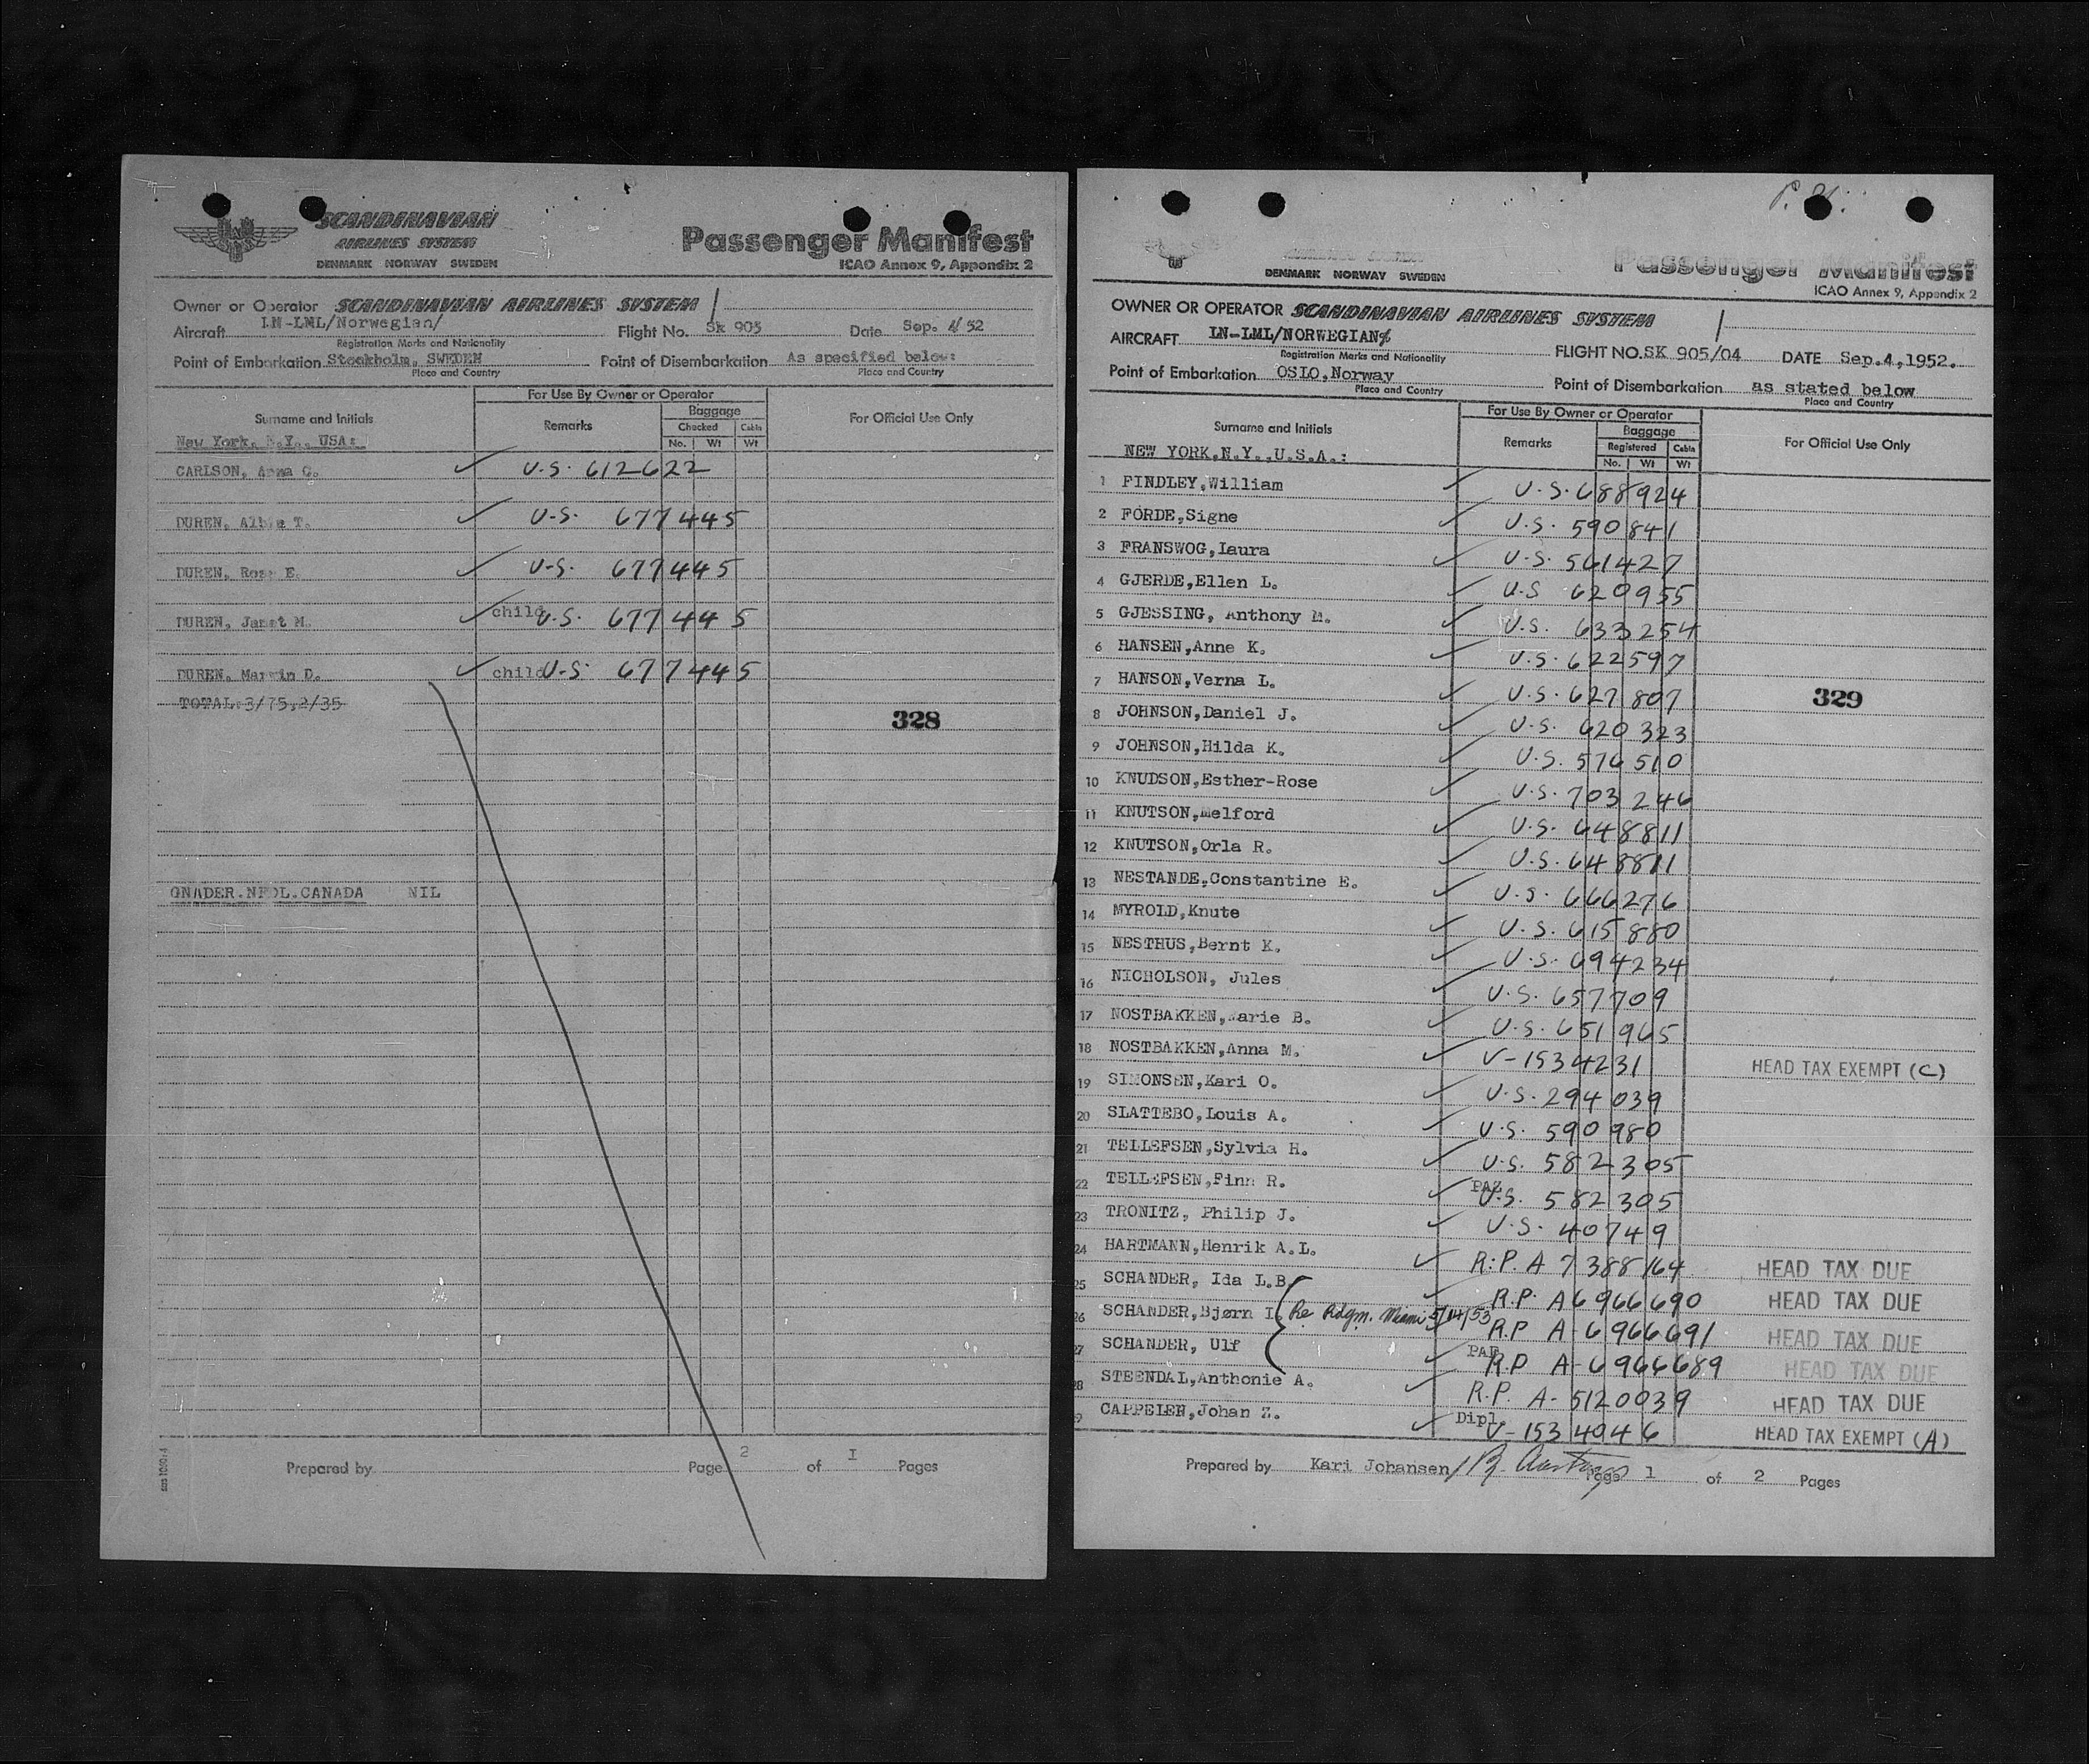 SCANDINAVIAN
AIRLINES SYSTEM
DENMARK NORWAY SWEDEN
Passenger Manifest
ICAO Annex 9, Appendix 2
Owner or Operator SCANDINAVIAN AIRLINES SYSTEM
Aircraft LN-LML/Norwegian/ Flight No. Sk 905 Date Sep. 4/52
Registration Marks and Nationality
Point of Embarkation Stockholm, SWEDEN Point of Disembarkation As specified below:
Place and Country Place and Country
For Use By Owner or Operator
Surname and Initials Remarks Baggage For Official Use Only
Checked Cabin
No. Wt Wt
New York, N.Y., USA:
CARLSON, Anna G. U.S. 612622
DUREN, Albin T. U.S. 677445
DUREN, Rose E. U.S. 677445
DUREN, Janet M. child U.S. 677445
DUREN, Marvin D. child U.S. 677445
TOTAL:3/75,2/35
328
GNADER.NFDL.CANADA NIL
sas 1080:4
Prepared by Page 2 of I Pages
P.
DENMARK NORWAY SWEDEN
Passenger Manifest
ICAO Annex 9, Appendix 2
OWNER OR OPERATOR SCANDINAVIAN AIRLINES SYSTEM
AIRCRAFT LN-LML/NORWEGIAN FLIGHT NO. SK 905/04 DATE Sep.4,1952.
Registration Marks and Nationality
Point of Embarkation OSLO,Norway Point of Disembarkation as stated below
Place and Country Place and Country
For Use By Owner or Operator
Surname and Initials Remarks Baggage For Official Use Only
Registered Cabin
No. Wt Wt
NEW YORK,N.Y.,U.S.A.:
1 FINDLEY,William U.S. 688924
2 FORDE,Signe U.S. 590841
3 FRANSWOG,Laura U.S. 561427
4 GJERDE,Ellen L. U.S 620955
5 GJESSING, Anthony M. U.S. 633254
6 HANSEN,Anne K. U.S. 622597
7 HANSON,Verna L. U.S. 627807
329
8 JOHNSON,Daniel J. U.S. 620323
9 JOHNSON,Hilda K. U.S. 576510
10 KNUDSON,Esther-Rose U.S. 703246
11 KNUTSON,Melford U.S. 648811
12 KNUTSON,Orla R. U.S. 648811
13 NESTANDE,Constantine E. U.S. 666276
14 MYROLD,Knute U.S. 615880
15 NESTHUS,Bernt K. U.S. 694234
16 NICHOLSON, Jules U.S. 657709
17 NOSTBAKKEN,Marie B. U.S. 651965
18 NOSTBAKKEN,Anna M. V-1534231 HEAD TAX EXEMPT (C)
19 SIMONSEN,Kari O. U.S. 294039
20 SLATTEBO,Louis A. U.S. 590980
21 TELLEFSEN,Sylvia H. U.S. 582305
22 TELLEFSEN,Finn R. U.S. 582305
23 TRONITZ, Philip J. U.S. 40749
24 HARTMANN,Henrik A.L. R.P. A 7388164 HEAD TAX DUE
25 SCHANDER, Ida L.B. R.P. A6966690 HEAD TAX DUE
26 SCHANDER,Bjørn I. Re Rdgm. Miami 5/14/53 R.P A-6966691 HEAD TAX DUE
27 SCHANDER, Ulf R.P A-6966689 HEAD TAX DUE
28 STEENDAL,Anthonie A. R.P. A-5120039 HEAD TAX DUE
CAPPELEN,Johan Z. Dipl. V-1534046 HEAD TAX EXEMPT (A)
Prepared by Kari Johansen/ Page 1 of 2 Pages